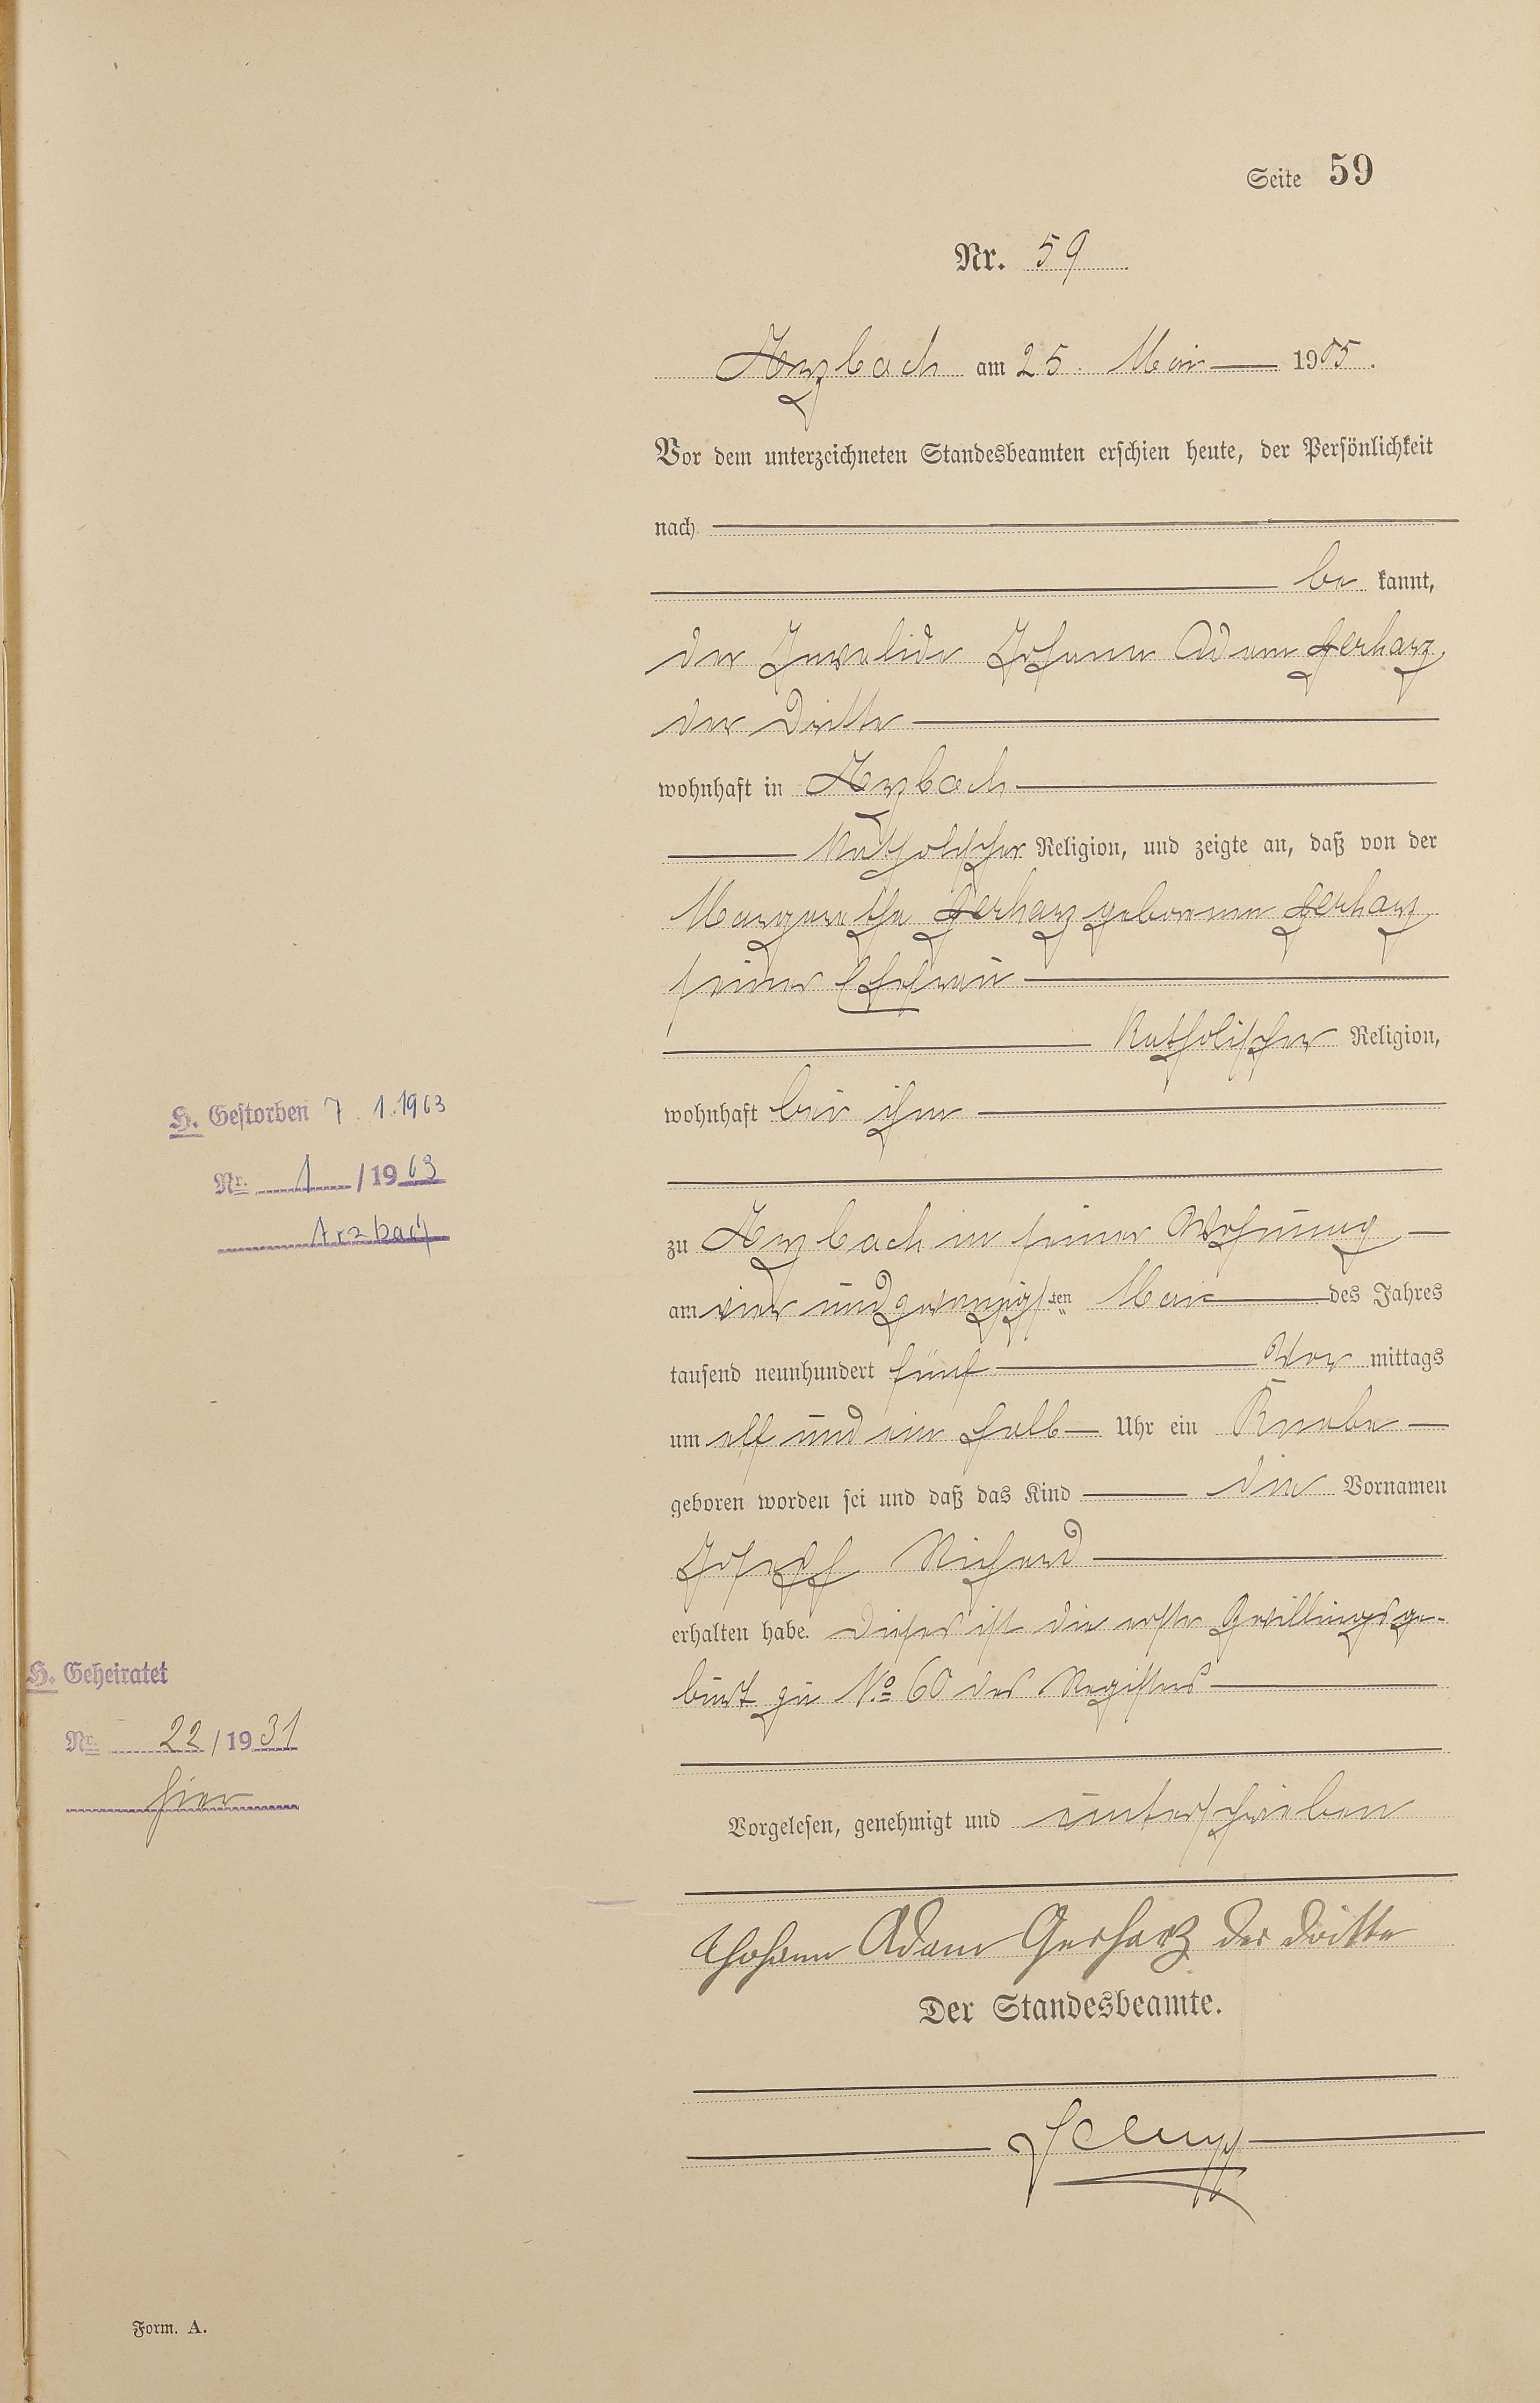 Seite 59
Nr. 59
Arzbach am 25. Mai 1905.
Vor dem unterzeichneten Standesbeamten erschien heute, der Persönlichkeit
nach
be kannt,
der Invalide Johann Adam Gerharz
der Dritte
wohnhaft in Arzbach
katholischer Religion, und zeigte an, daß von der
Margarethe Gerharz geborenen Gerharz
seiner Ehefrau
katholischer Religion,
wohnhaft bei ihm
zu Arzbach in seiner Wohnung
am vier und zwanzigsten Mai des Jahres
tausend neunhundert fünf Vor mittags
um elf und ein halb Uhr ein Knabe
geboren worden sei und daß das Kind die Vornamen
Joseph Richard
erhalten habe. Dieses ist die erste Zwillingsge-
burt zu No 60 des Registers
Vorgelesen, genehmigt und unterschrieben
Johann Adam Gerharz der dritte
Der Standesbeamte.
H. Gestorben 7.1.1963
Nr. 1 / 1963
Arzbach
H. Geheiratet
Nr. 22 / 1931
hier
Form. A.